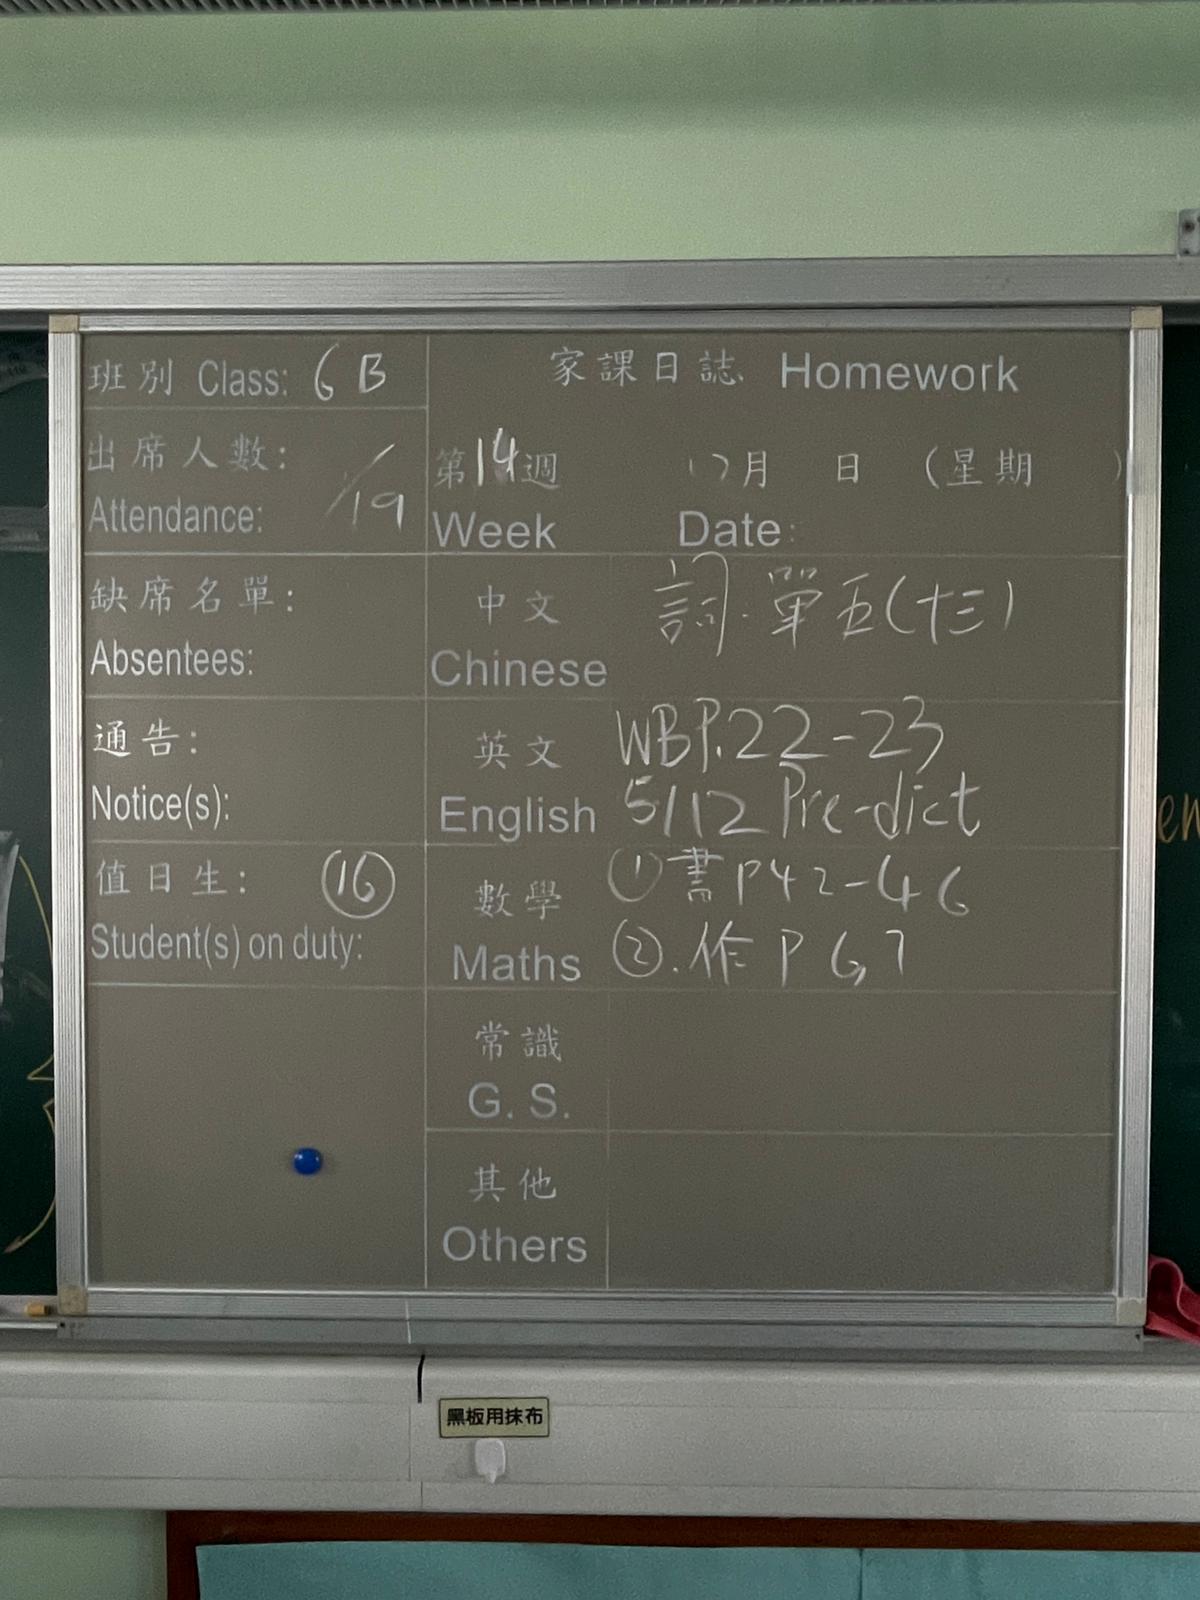 班別 Class: 6B
家課日誌 Homework
出席人數:
Attendance: /19
第14週 12月 日 (星期 )
Week Date:
缺席名單:
Absentees:
中文
Chinese
詞.單五(十三)
通告:
Notice(s):
英文
English
WBP.22-23
5/12 Pre-dict
值日生: ⑯
Student(s) on duty:
數學
Maths
①書P42-46
②.作P67
常識
G. S.
其他
Others
黑板用抹布